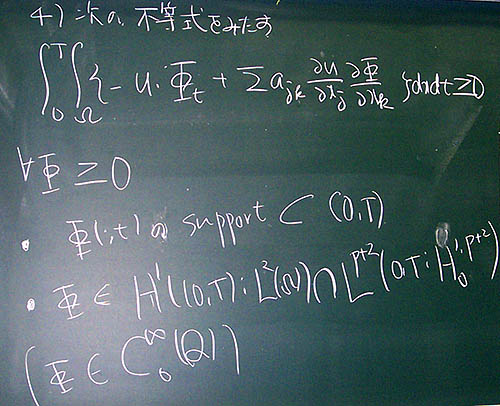 4) 次の不等式をみたす
∫₀ᵀ∫_Ω {-u・Φ_t + Σ a_{jk} ∂u/∂x_j ∂Φ/∂x_k }dxdt ≥ 0
∀Φ ≥ 0
・ Φ(・,t) の support ⊂ (0,T)
・ Φ ∈ H¹((0,T); L²(Ω)) ∩ L^{p+2}(0,T; H₀^{1,p+2})
(Φ ∈ C₀^∞(Q))